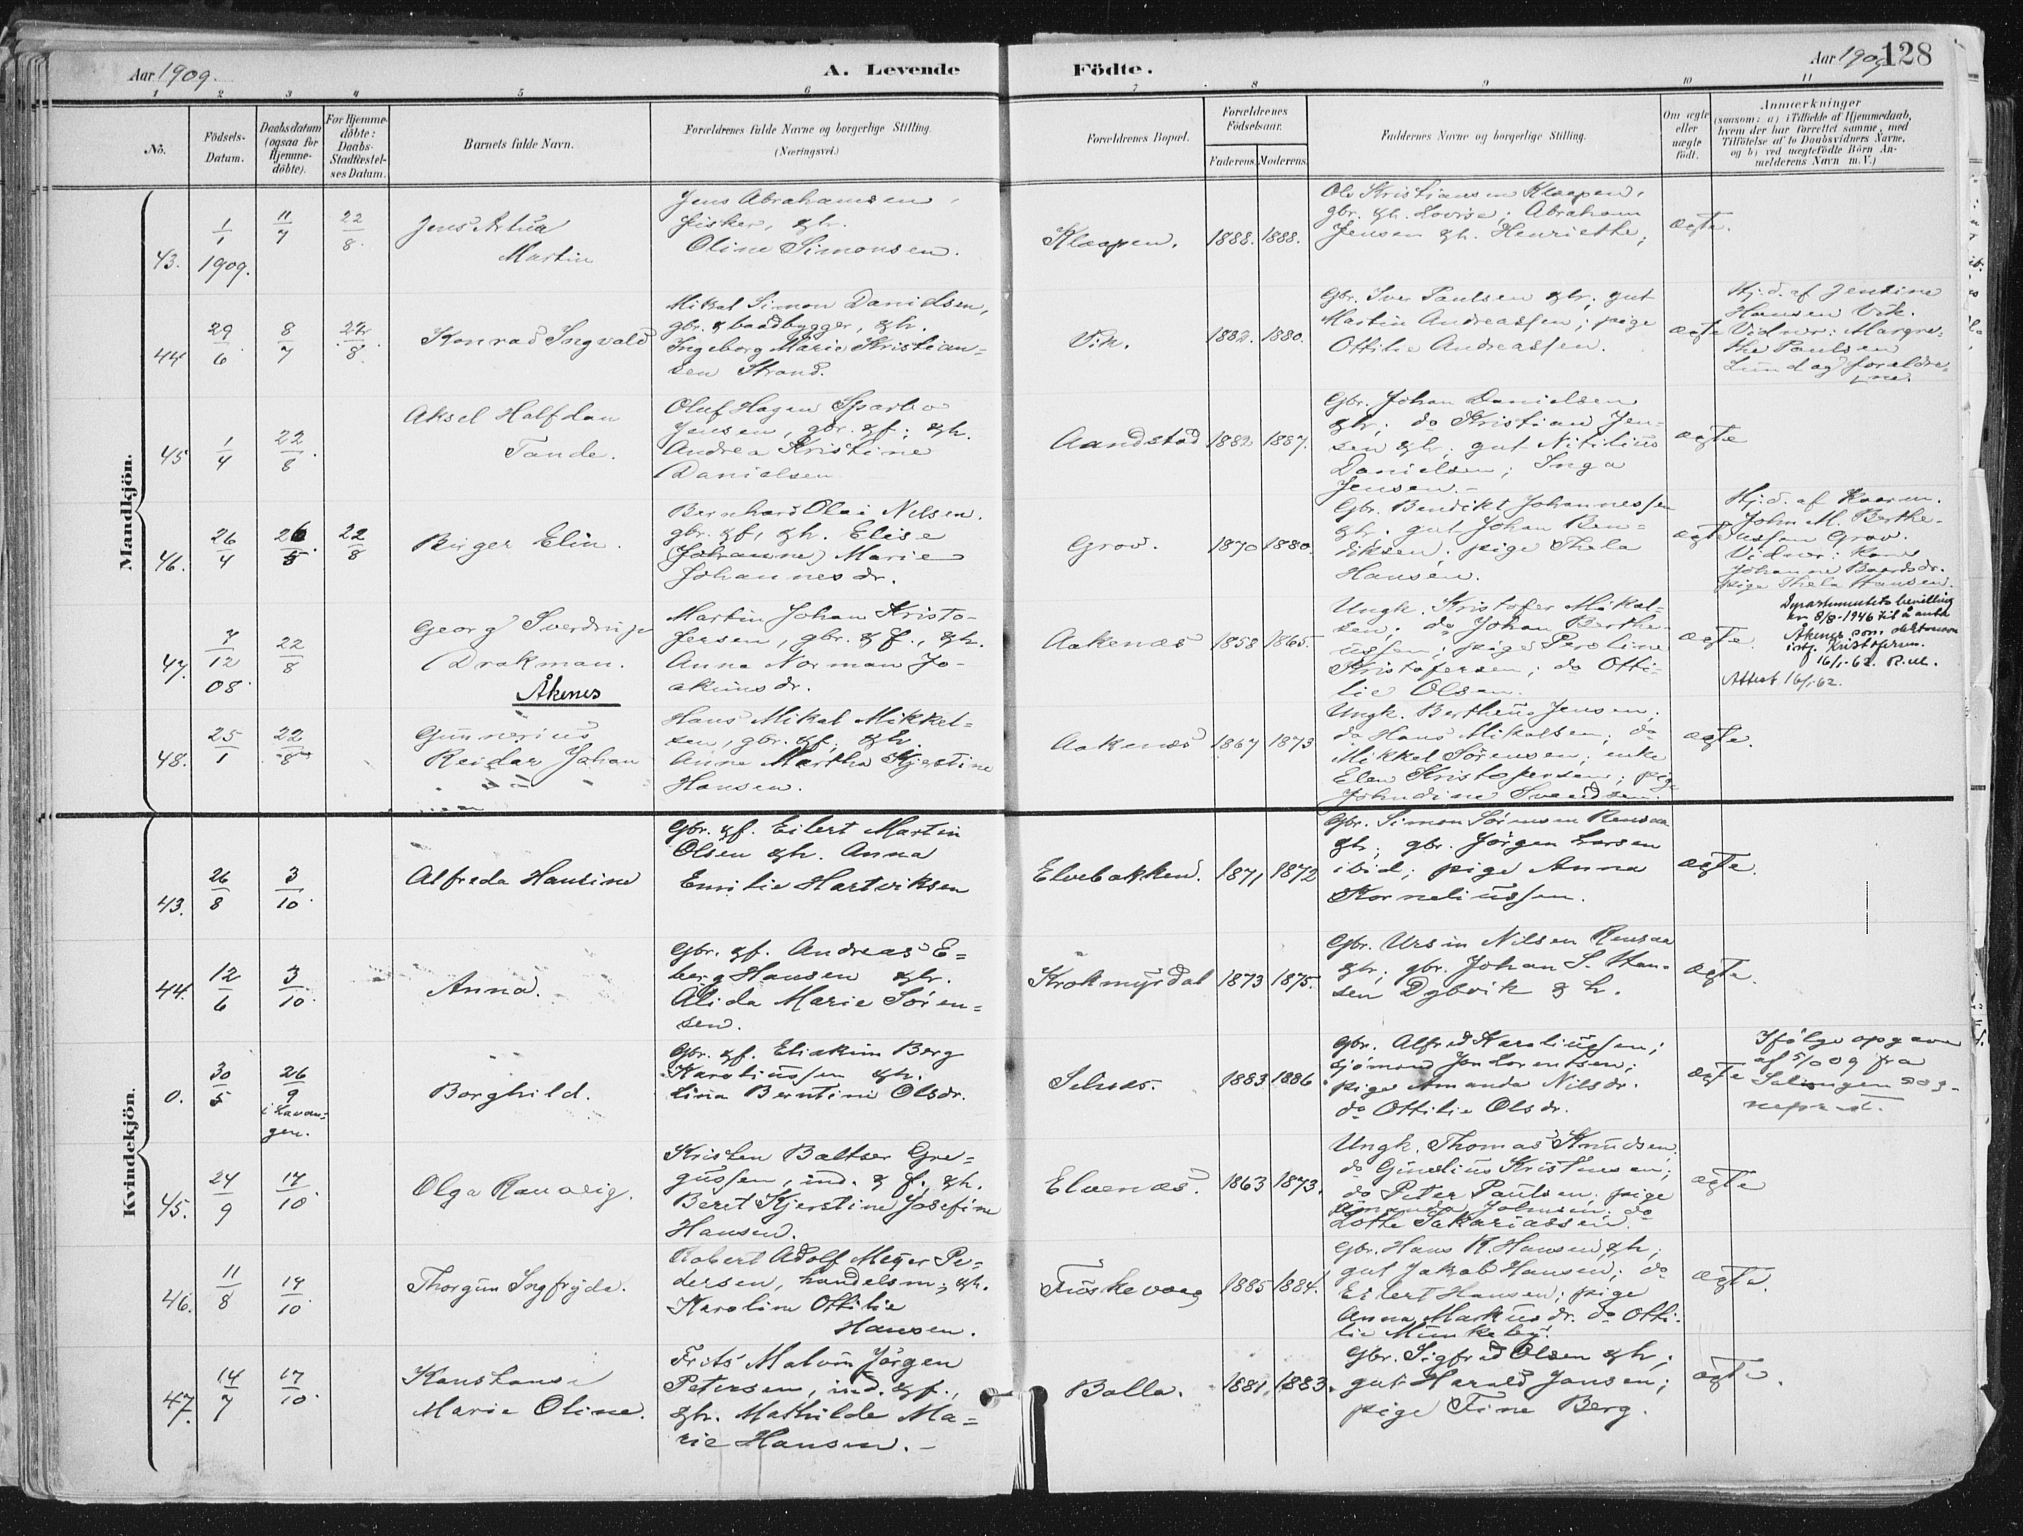 Aar 1909.
A. Levende Födte.
Aar 1909.
128
1 2 3 4 5 6 7 8 9 10 11
No.
Födsels-
Datum.
Daabsdatum
(ogsaa for
Hjemme-
döbte).
For Hjemme-
döbte:
Daabs-
Stadfæstel-
ses Datum.
Barnets fulde Navn.
Forældrenes fulde Navne og borgerlige Stilling.
(Næringsvei.)
Forældrenes Bopæl.
Forældrenes
Födselsaar.
Faderens. Moderens.
Faddernes Navne og borgerlige Stilling.
Om ægte
eller
uægte
født.
Anmærkninger
(saasom: a) i Tilfælde af Hjemmedaab,
hvem der har forrettet samme, med
Tilföielse af to Daabsvidners Navne,
og b) ved uægtefödte Börn An-
melderens Navn m. V.)
Mandkjön.
43.
1/1
1909.
11/7
22/8.
Jens
Martin
Jens Abrahamsen,
fisker, & h.
Oline Simonsen.
Klaapen.
1888. 1888.
Ole Kristiansen Klaapen,
gbr. & h. Lovise; Abraham
Jensen & h. Henriette;
ægte.
44
29/6
8/7
22/8.
Konrad Ingvald
Mikal Simon Danielsen,
gbr. & baadbygger, & h.
Ingeborg Marie Kristian-
sen Strand.
Vik.
1882. 1880.
Gbr. Iver Paulsen & h.; gut
Martin Andreassen; pige
Ottilie Andreassen.
ægte
Hj.d. af Jensine
Hansen Vik.
Vidner: Margre-
the Paulsen
Lund og forældre-
ne.
45
1/4
22/8
Aksel Halfdan
Tande.
Oluf Hagen Sparbo
Jensen, gbr. & f.; & h.
Andrea Kristine
Danielsen
Aandstad
1882 1887.
Gbr. Johan Danielsen
& h.; do Kristian Jen-
sen & h.; gut
Danielsen; Inga
Jensen.-
ægte
46.
26/4
26/5.
22/8
Birger Elin.
Bernhard Olai Nilsen.
gbr. & f, & h. Elise
(Johanne) Marie
Johannesdr.
Grov.
1870 1880.
Gbr. Bendikt Johannessen
& h.; gut Johan Ben-
diksen; pige Thela
Hansen.
ægte
Hj.d. af
John M. Berthe-
ussen Grov.
Vidner: Kone
Johanne Baardsdr.
pige Thela Hansen.
47.
7/12
08.
22/8
Georg Sverdrup
Drakman.
Åkenes
Martin Johan Kristo-
fersen, gbr. & f., & h.
Anna Norman Jo-
akimsdr.
Aakenæs
1858 1865.
Ungk. Kristofer Mikal-
sen; do Johan Berthe-
ussen; pige Peroline
Kristofersen; do Otti-
lie Olsen.
ægte.
Departementets bevilling
av 8/8-1946 til å anta
Åkenes som slektsnavn
istf. Kristofersen.
16/1-62. R.M.
Attest 16/1-62.
48.
25/1
22/8
Gunnerius
Reidar Johan
Hans Mikal Mikkel-
sen, gbr. & f.; & h.
Anne Martha Kjerstine
Hansen.
Aakenæs
1867 1873
Ungk. Bertheus Jensen;
do Hans Mikalsen; do
Mikkel Sørensen; enke
Elen Kristofersen; pige
Johndine Svendsen.
ægte.
Kvindekjön.
43.
26/8
3/10.
Alfreda Hansine
Gbr. & f. Eilert Martin
Olsen & h. Anna
Emilie Hartviksen
Elvebakken.
1871, 1872
Gbr. Simon Sørensen Rensaa
& h; gbr. Jørgen Larsen
ibid; pige Anna
Korneliussen.
ægte.
44.
12/6
3/10.
Anna.
Gbr. & f. Andreas E-
berg Hansen & h.
Alida Marie Sören-
sen.
Krokmyrdal
1873 1875.
Gbr. Ursin Nilsen Rensaa
& h; gbr. Johan S. Han-
sen Dybvik & h.
ægte.
0.
30/5
26/9
i Lavan-
gen.
Borghild.
Gbr. & f. Eliakim Berg
Karoliussen & h.
Lina Berntine Olsdr.
Selnæs.
1883 1886
Gbr. Alfred Karoliussen;
sjömand Jon Lorentsen;
pige Amanda Nilsdr.
do Ottilie Olsdr.
ægte
Ifölge opgave
af 5/10 09 fra
Salangen sog-
neprest.
45.
24/9
17/10.
Olga Ranveig.
Kristen Baltser Gre-
gussen, ind. & f. & h.
Beret Kjerstine Josefine
Hansen.
Elvenæs.
1863 1873.
Ungk. Thomas Knudsen.
do Kristensen;
do Peter Paulsen; pige
Amanda Johnsen; do
Lotte Sakariassen.
ægte
46.
11/8
17/10.
Thorgun Ingfryde.
Robert Adolf Meyer Pe-
dersen, handelsm.; & h.
Karoline Ottilie
Hansen.
Fuskevaag
1885 1884.
Gbr. Hans K. Hansen & h;
gut Jakob Hansen; do
Eilert Hansen; pige
Anna Markusdr. do Otti-
lie Munkeby.
ægte.
47.
14/7
17/10.
Konstanse
Marie Oline.
Frits Malvin Jörgen
Petersen, ind. & f.,
& h. Mathilde Ma-
rie Hansen. -
Balla.
1881, 1883.
Gbr. Sigfred Olsen & h;
gut Harald Jansen;
pige Tine Berg.
ægte.